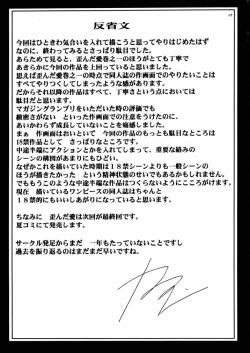 反省文
今回はひときわ気合いを入れて描こうと思ってやりはじめたはず
なのに、終わってみるとさっぱりな駄目でした。
あらためて見ると、歪んだ愛巻之一のほうがとても丁寧で
あきらかに今回の作品を上回っていると思いました。
思えば歪んだ愛巻之一の時点で同人誌の作画面でのやりたいことは
すべてやりつくしてしまったような感があります。
だからそれ以降の作品はすべて、丁寧さという点においては
駄目だと思います。
マガジングランプリをいただいた時の評価でも
緻密さがない といった作画面での注意をうけたのに、
あいかわらず成長していないことを痛感しました。
まぁ 作画面はおいといて 今回の作品のもっとも駄目なところは
18禁作品として さっぱりなところです。
中途半端にアクションとかを入れてしまって、重要な絡みの
シーンの構図があまりにもひどい。
なぜかこれを描いていた時期は18禁シーンよりも一般シーンの
ほうが描きたかった という精神状態のせいでもあるかもしれません。
でももうこのような中途半端な作品はつくらないようにこころがけます。
現在 描いているワンピースの同人誌はちゃんと
18禁的にもいいしあがりになっていると思います。
ちなみに 歪んだ愛は次回が最終回です。
夏コミにて発売します。
サークル発足からまだ 一年もたっていないことですし
過去を振り返るのはまだまだ早いですね。